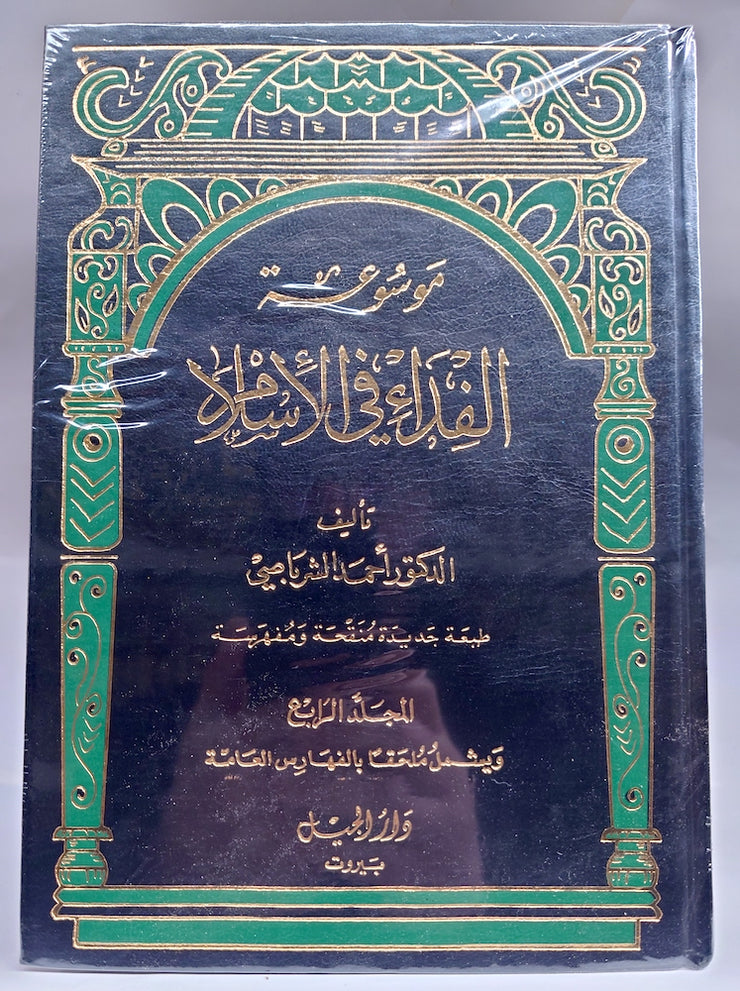 مَوسُوعَة
الفِدَاءِ في الإسْلام
تأليف
الدكتور أحمد الشرباصي
طبعَة جَديدَة مُنَقَّحَة وَمُفهرَسَة
المجَلّد الرّابع
وَيشملُ مُلحَقًا بالفهَارِس العَامّة
دَار الجيل
بَيروت